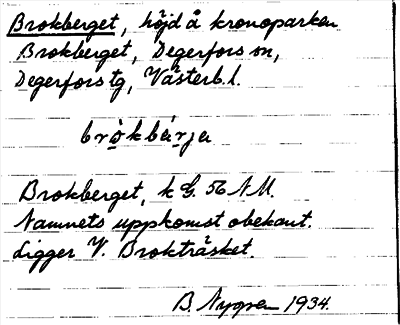 Brokberget, höjd å kronoparken
Brokberget, Degerfors sn,
Degerfors tg, Västerb. l.
bròkbárja
Brokberget, k G. 56 NM.
Namnets uppkomst obekant.
Ligger V. Brokträsket.
B. Nygren 1934.